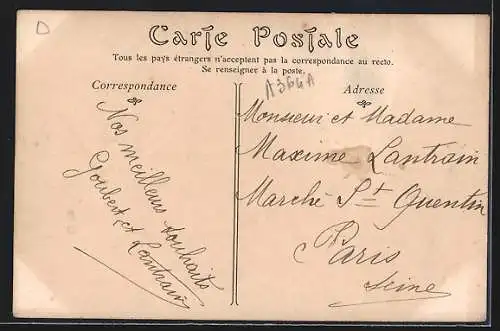 D
Carte Postale
Tous les pays étrangers n'acceptent pas la correspondance au recto.
Se renseigner à la poste.
A364A
Correspondance
Adresse
Nos meilleurs souhaits
Goubert et Lantrain
Monsieur et Madame
Maxime Lantrain
Marché St Quentin
Paris
Seine